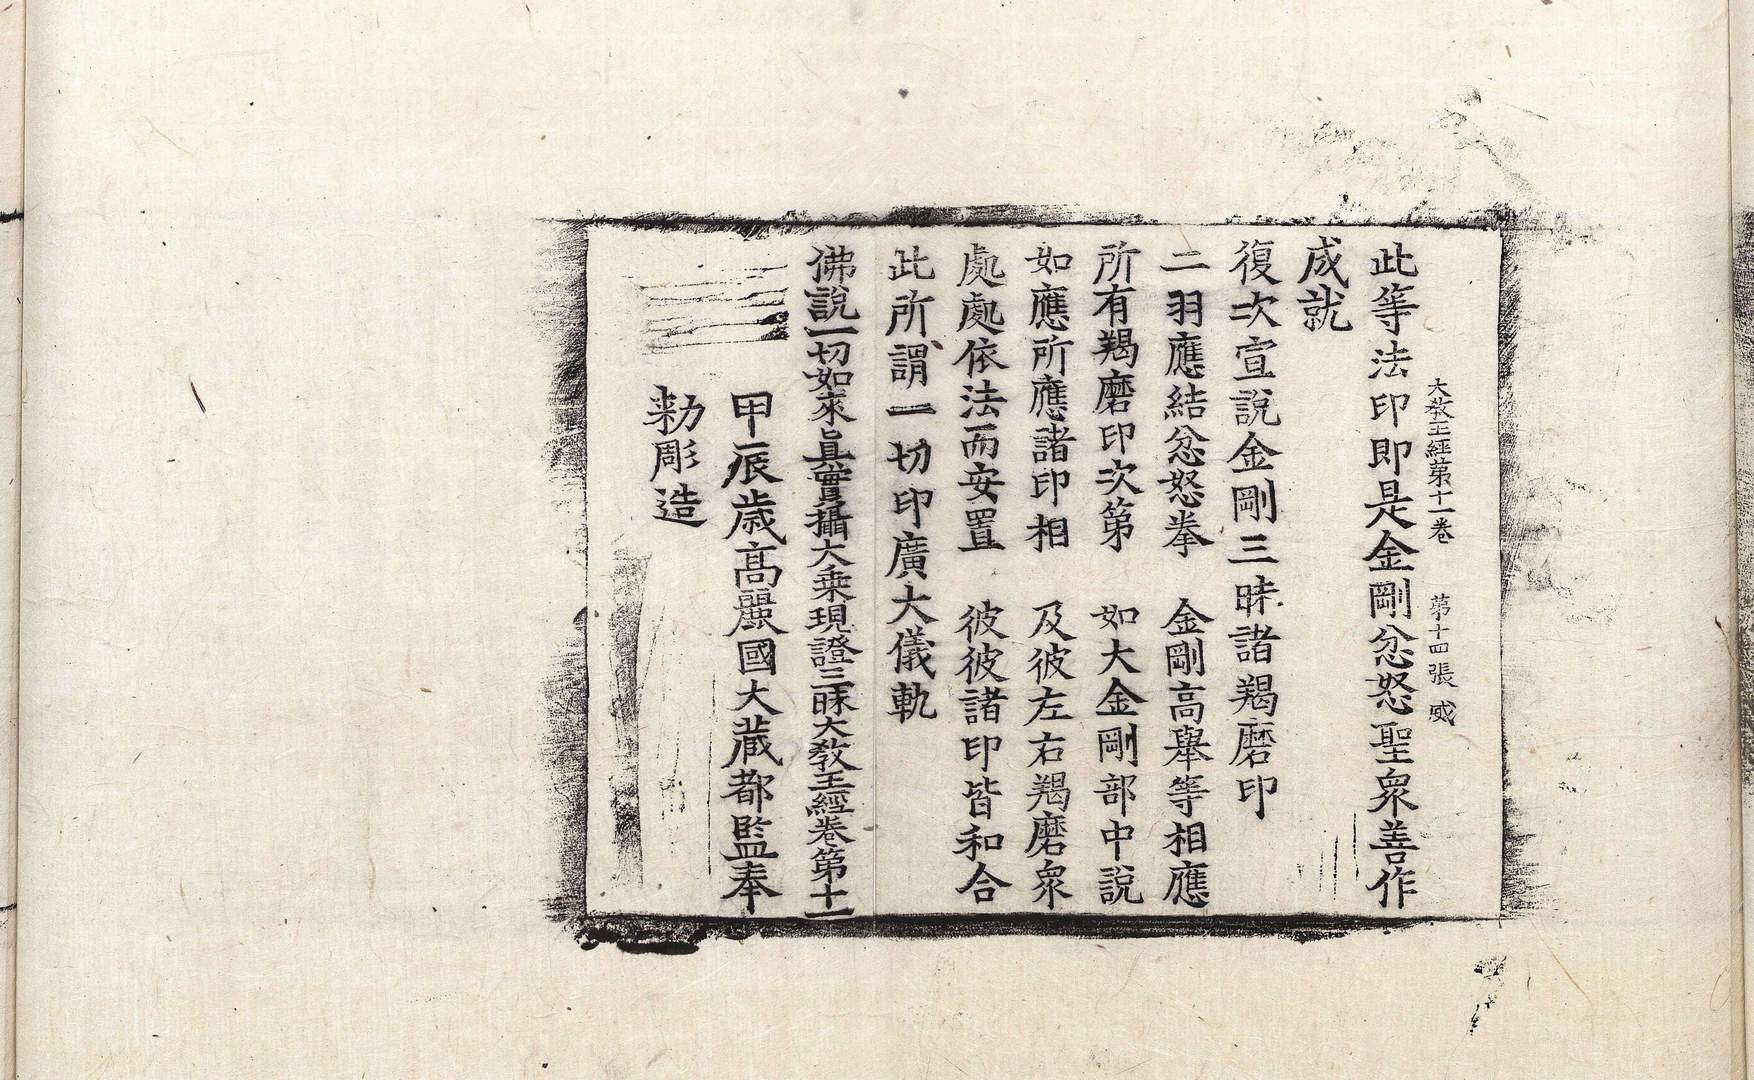 大教王經第十一卷 第十四張 感
此等法印即是金剛忿怒聖衆善作
成就
復次宣說金剛三昧諸羯磨印
二羽應結忿怒拳 金剛高舉等相應
所有羯磨印次第 如大金剛部中說
如應所應諸印相 及彼左右羯磨衆
處處依法而安置 彼彼諸印皆和合
此所謂一切印廣大儀軌
佛說一切如來眞實攝大乘現證三昧大教王經卷第十一
甲辰歲高麗國大藏都監奉
勑彫造